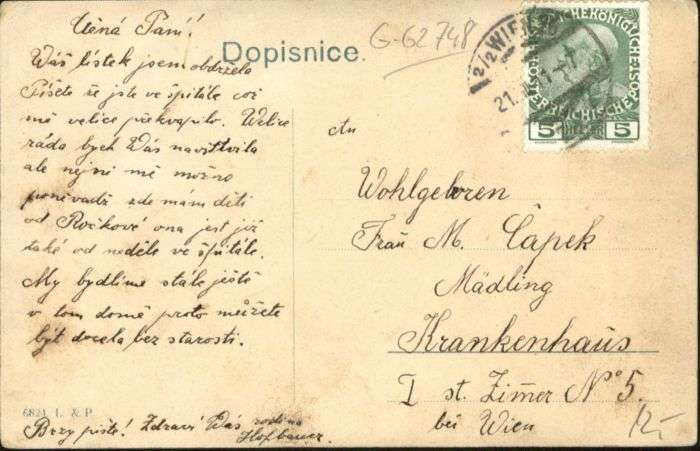 Ctěná Paní!
Dopisnice.
G-62748
Wáš lístek jsem obdržela
Píšete že jste ve špitále což
mě velice překvapilo. Welice
ráda bych Wás navštívila
ale nejni mě možno
poněvadž zde mám děti
od Ročkové ona jest již
také od neděle ve špitále.
My bydlíme stále ještě
v tom domě proto můžete
být docela bez starosti.
6824 L. & P.
Brzy pište! Zdraví Wás rodina
Hofbauer.
2/2 WIEN
21.
5 5
An
Wohlgeboren
Frau M. Čapek
Mädling
Krankenhaus
I st. Zimer No 5.
bei Wien
12-